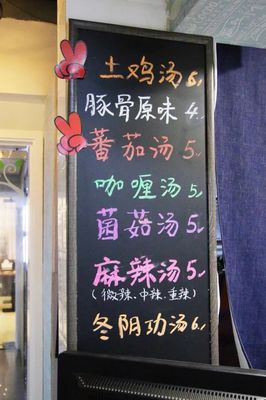 土鸡汤 6.
豚骨原味 4.
蕃茄汤 5.
咖喱汤 5.
菌菇汤 5.
麻辣汤 5.
(微辣.中辣.重辣)
冬阴功汤 6.